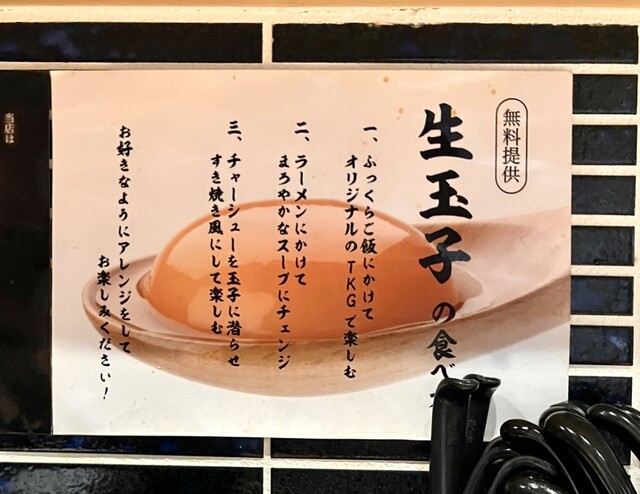 無料提供
生玉子の食べ
一、ふっくらご飯にかけて
オリジナルのTKGで楽しむ
二、ラーメンにかけて
まろやかなスープにチェンジ
三、チャーシューを玉子に潜らせ
すき焼き風にして楽しむ
お好きなようにアレンジをして
お楽しみください！
当店は